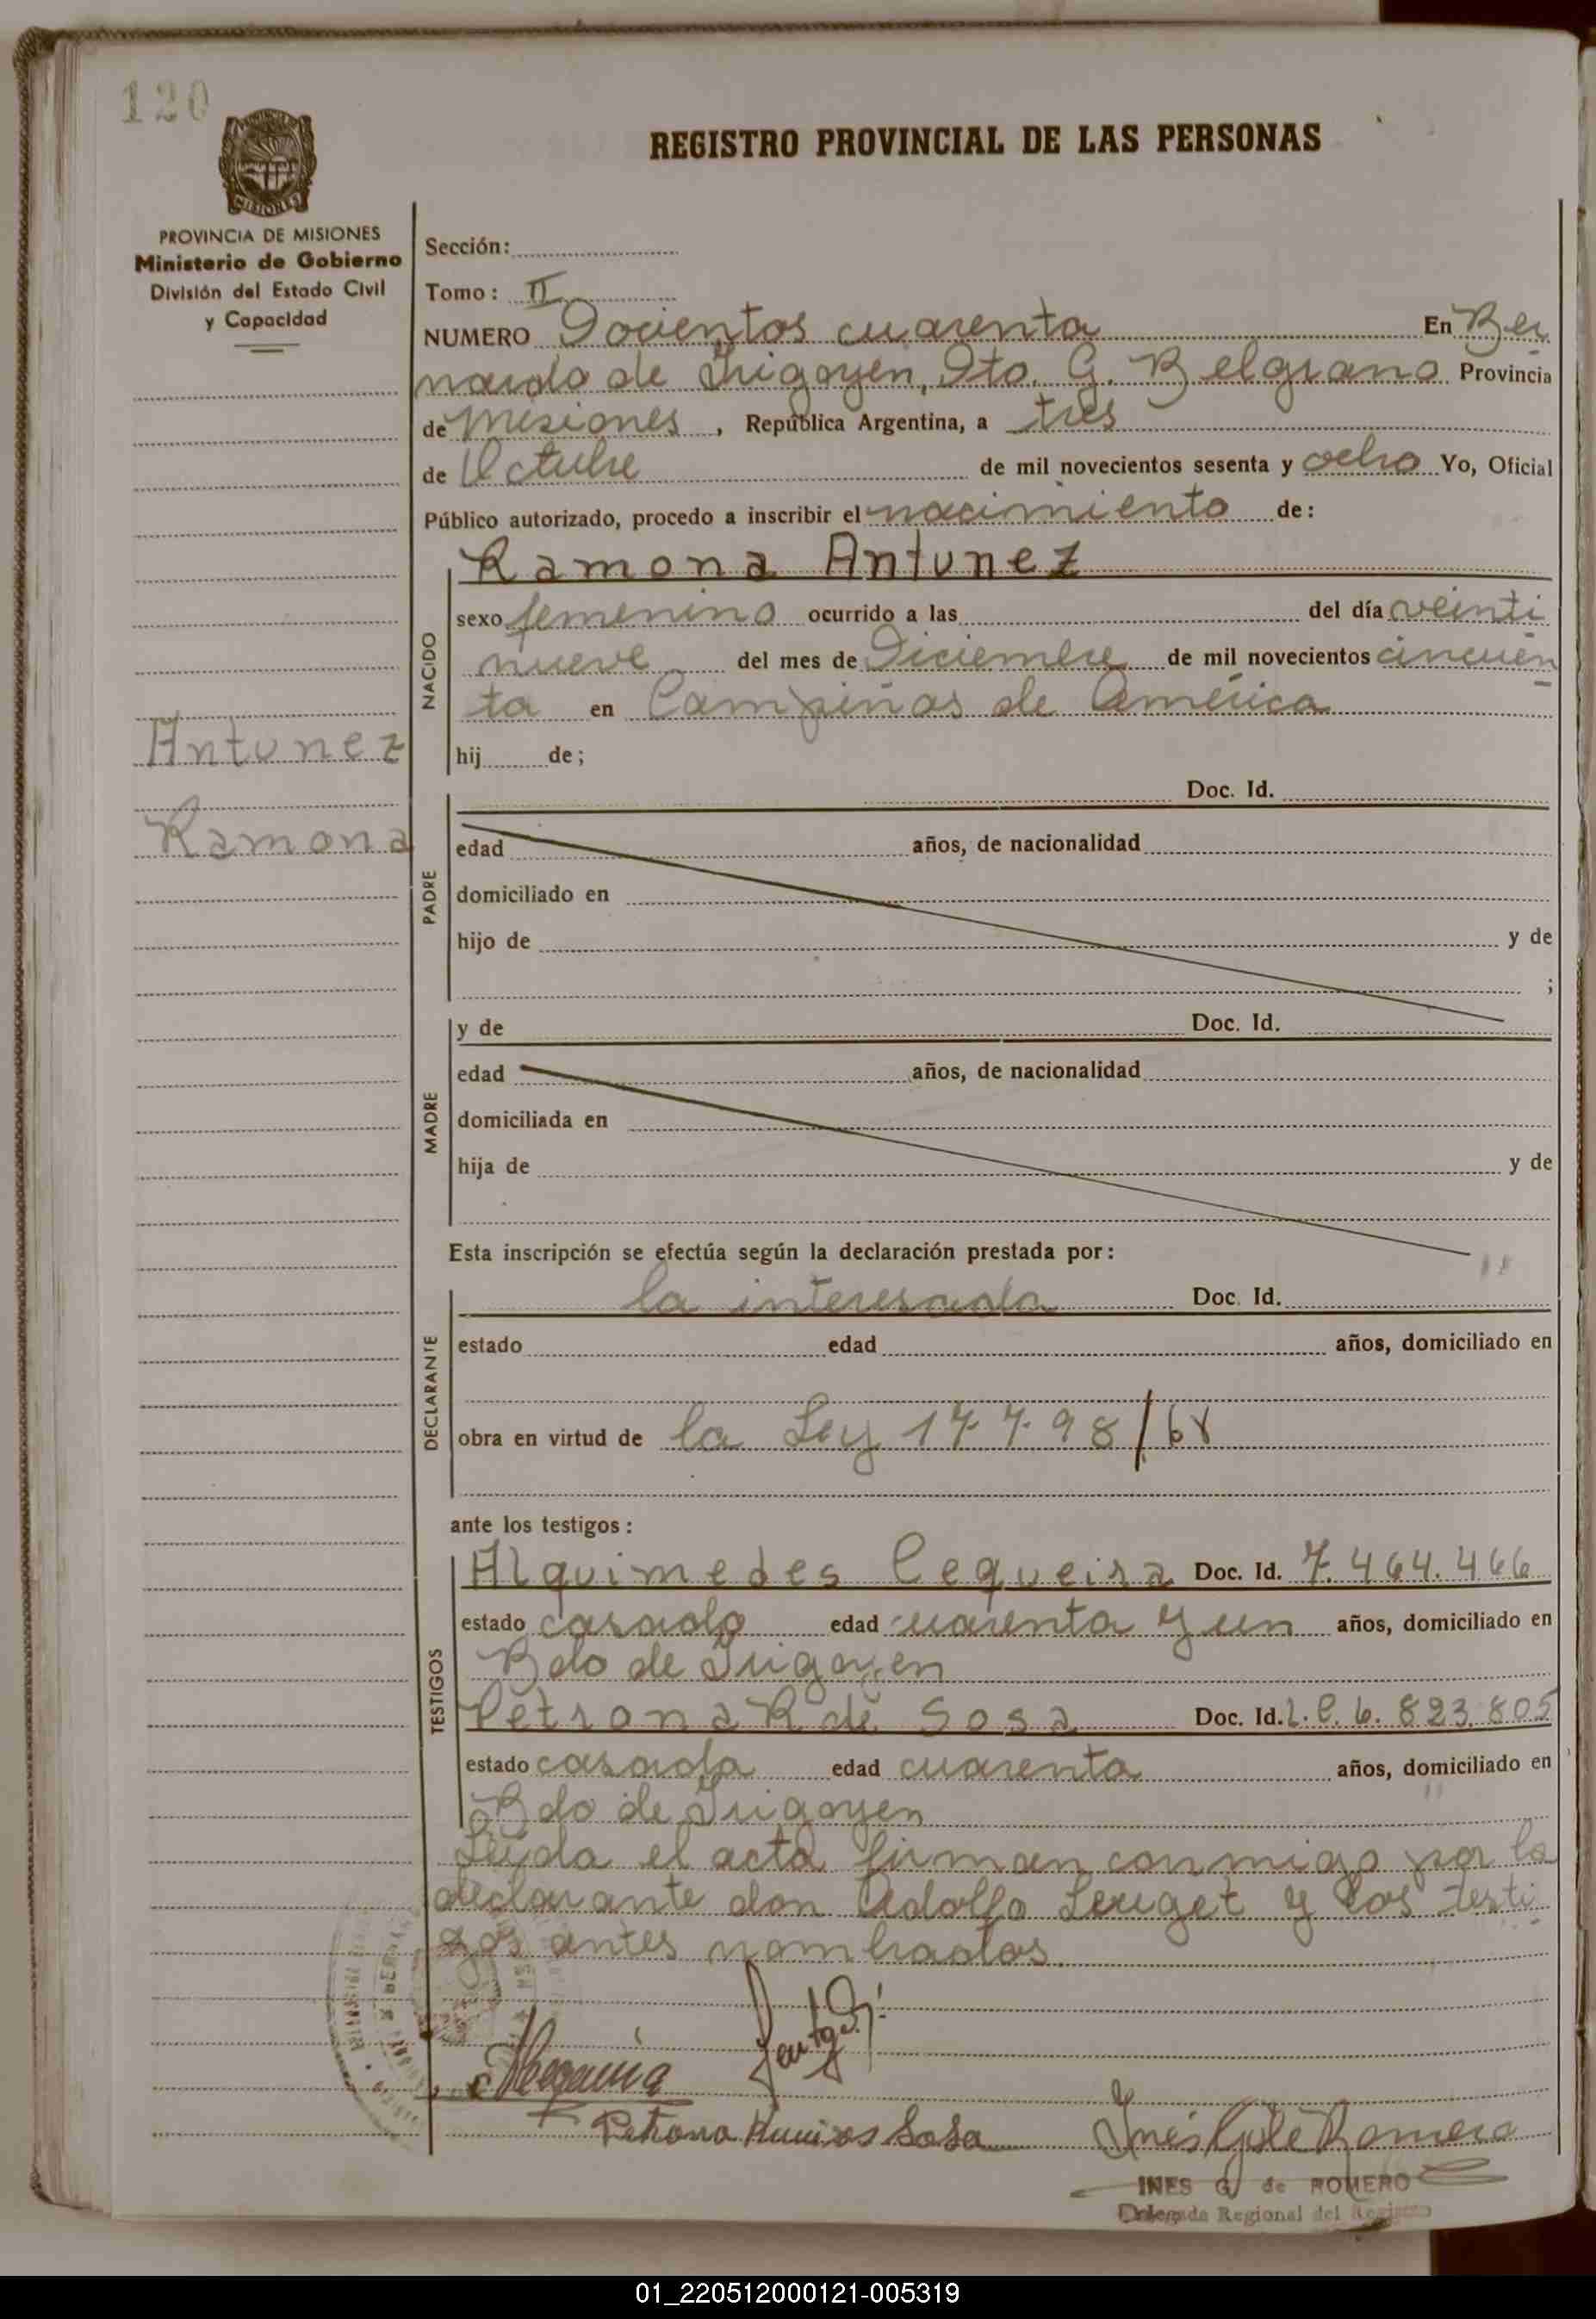 120
MISIONES
REGISTRO PROVINCIAL DE LAS PERSONAS
PROVINCIA DE MISIONES
Ministerio de Gobierno
División del Estado Civil
y Capacidad
Sección:
Tomo: II
NUMERO Docientos cuarenta En Ber
nardo de Irigoyen, Dto. G. Belgrano Provincia
de Misiones, República Argentina, a tres
de Octubre de mil novecientos sesenta y ocho Yo, Oficial
Público autorizado, procedo a inscribir el nacimiento de:
Ramona Antunez
NACIDO
sexo femenino ocurrido a las del día veinti
nueve del mes de Diciembre de mil novecientos cincuen
ta en Campiñas de América
hij de;
Antunez
Ramona
PADRE
Doc. Id.
edad años, de nacionalidad
domiciliado en
hijo de y de
;
MADRE
y de Doc. Id.
edad años, de nacionalidad
domiciliada en
hija de y de
Esta inscripción se efectúa según la declaración prestada por:
DECLARANTE
la interesada Doc. Id.
estado edad años, domiciliado en
obra en virtud de la Ley 17.798/68
ante los testigos:
TESTIGOS
Alquimedes Cequeira Doc. Id. 7.464.466
estado casado edad cuarenta y un años, domiciliado en
Bdo de Irigoyen
Petrona R de Sosa Doc. Id. L.C. 6.823.805
estado casada edad cuarenta años, domiciliado en
Bdo de Irigoyen
Leída el acta firman conmigo por la
declarante don Adolfo Leuget y los testi
gos antes nombrados.
Petrona Ramires Sosa
Inés G de Romero
INES G. de ROMERO
Delegada Regional del Registro
01_220512000121-005319